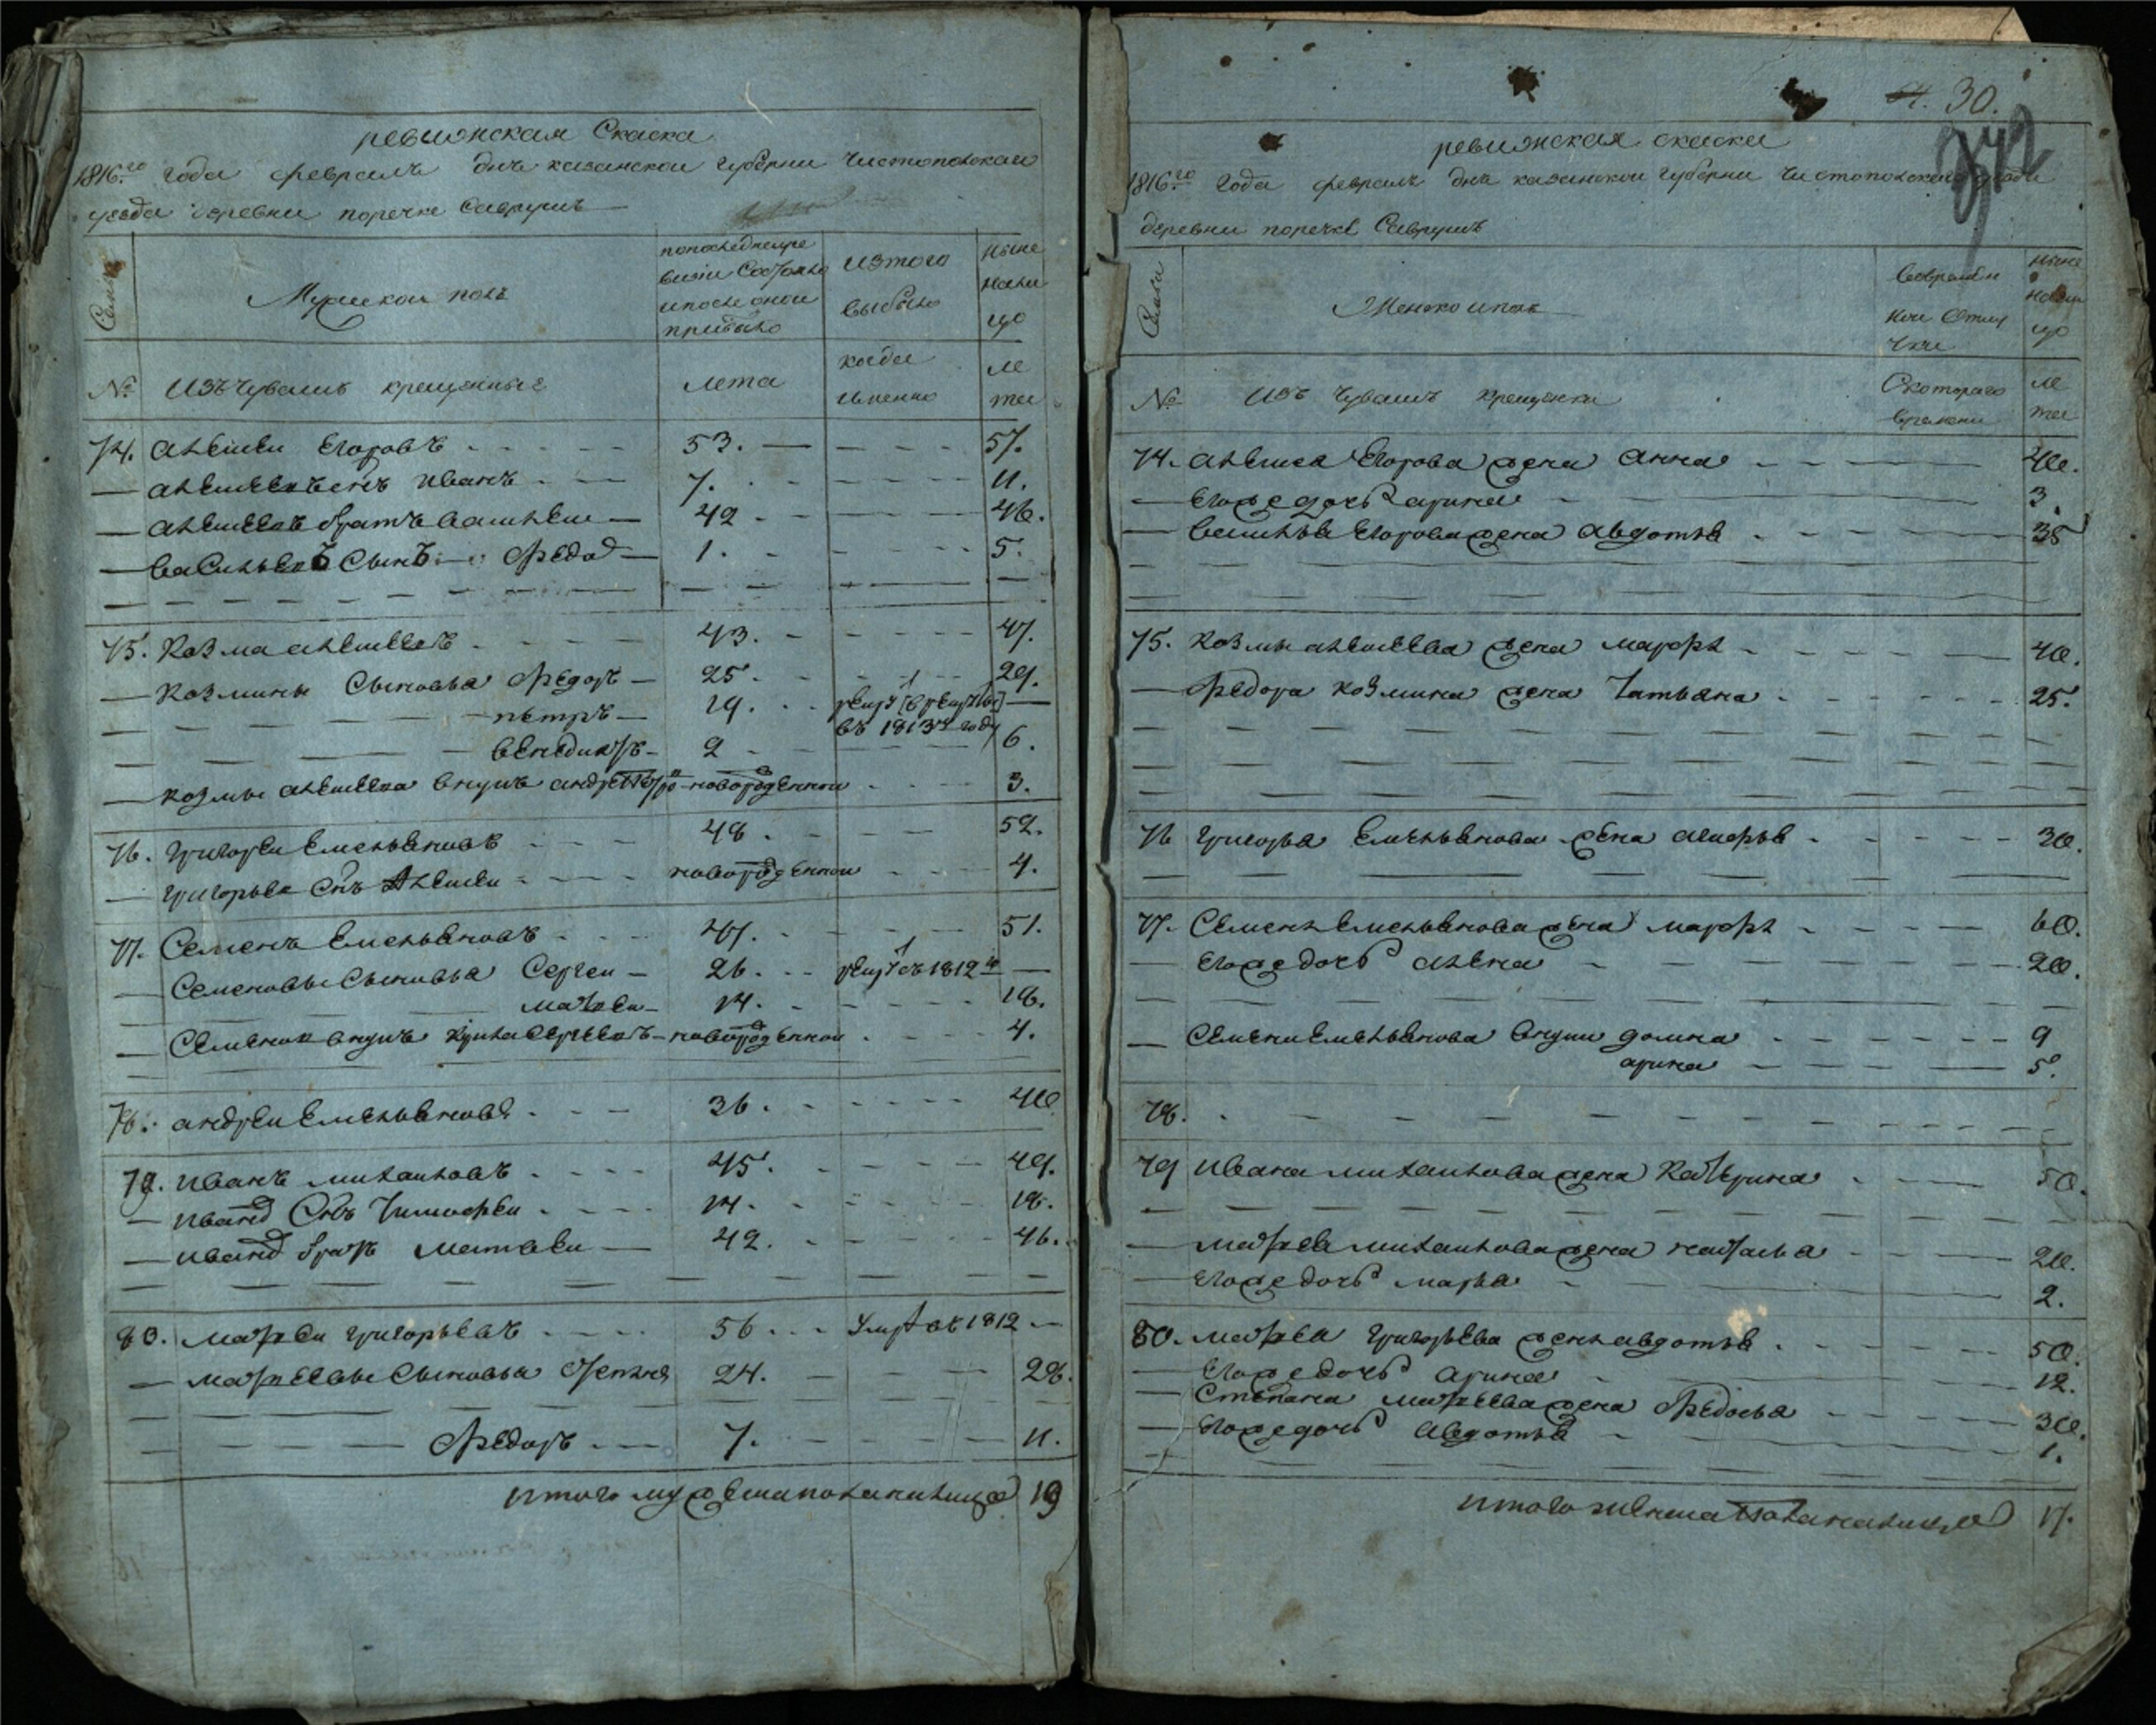 ревижская Скаска
1816го года февраль дня казанской губернии Чистопольскаи
уезда деревни поречке Саврушъ
Семьи
Мужскои полъ
попоследнеи ре
визии Состояло
и после онои
прибыло
изтого
выбыло
Ныне
нали
цо
№
Изъ Чувашъ крещенные
лета
когда
именно
ле
та
74. Алексеи Егоровъ 53. 57.
Алексеевъ сынъ Иванъ 7. 11.
Алексеевъ братъ Василеи 42 46.
Васильевъ Сынъ Федор 1. 5.
75. Козма Алексеевъ 43. 47.
Козмины Сыновья Федоръ 25. 29.
петръ 19.
въ 1813м году
Венедиктъ 2 6.
Козмы Алексеева внукъ новорожденнои 3.
76. Григореи Емельяновъ 48. 52.
Григорьев Сынъ Алексеи новорожденнои 4.
77. Семенъ Емельяновъ 47. 51.
Семеновы Сыновья Сергеи 26. 1812го
Матвеи 14. 18.
Семенов внукъ Сергеевъ новорожденнои 4.
78. Андреи Емельяновъ 36. 40
79. Иванъ михаиловъ 45. 49.
Иванов Сынъ Тимофеи 14. 18.
Иванов братъ Матвеи 42. 46.
80. Матвеи Григорьевъ 56 умре въ 1812
Матвеевы Сыновья Степанъ 24. 28.
Федоръ 7. 11.
итого мужеска пола налицо 19
30.
ревижская скаска
1816го года февраль дня казанскои губернии Чистопольскаи уезда
деревни поречке Саврушъ
Семьи
Женскои полъ
Вовремен
нои Отлу
чки
ныне
нали
цо
№
Изъ Чувашъ крещенки
Скотораго
времени
ле
та
74. Алексея Егорова жена Анна 40.
Егоже дочь арина 3.
Василья Егорова жена Авдотья 35
75. Козмы Алексеева жена марфа 40.
Федора Козмина жена Татьяна 25.
76 Григорья Емельянова жена 30.
77. Семена Емельянова жена марфа 60.
Егоже дочь алена 20.
Семена Емельянова внуки домна 9
арина 5.
78.
79 Ивана михаилова жена Катерина 50.
Матвея михаилова жена наталья 20.
Егоже дочь марья 2.
80. Матвея Григорьева жена авдотья 50.
Егоже дочь Арина 12.
Степана Матвеева жена Федосья 30.
Егоже дочь Авдотья 1.
итого женска пола налицо 17.